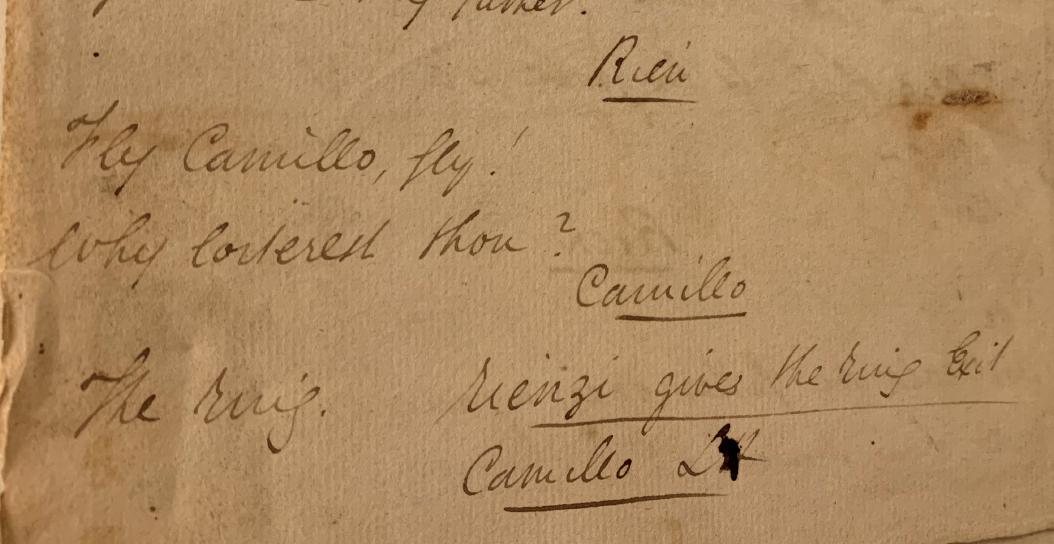 Rien
Fly Camillo, fly!
Why loiterest thou?
Camillo
The ring. Rienzi gives the ring Exit
Camillo